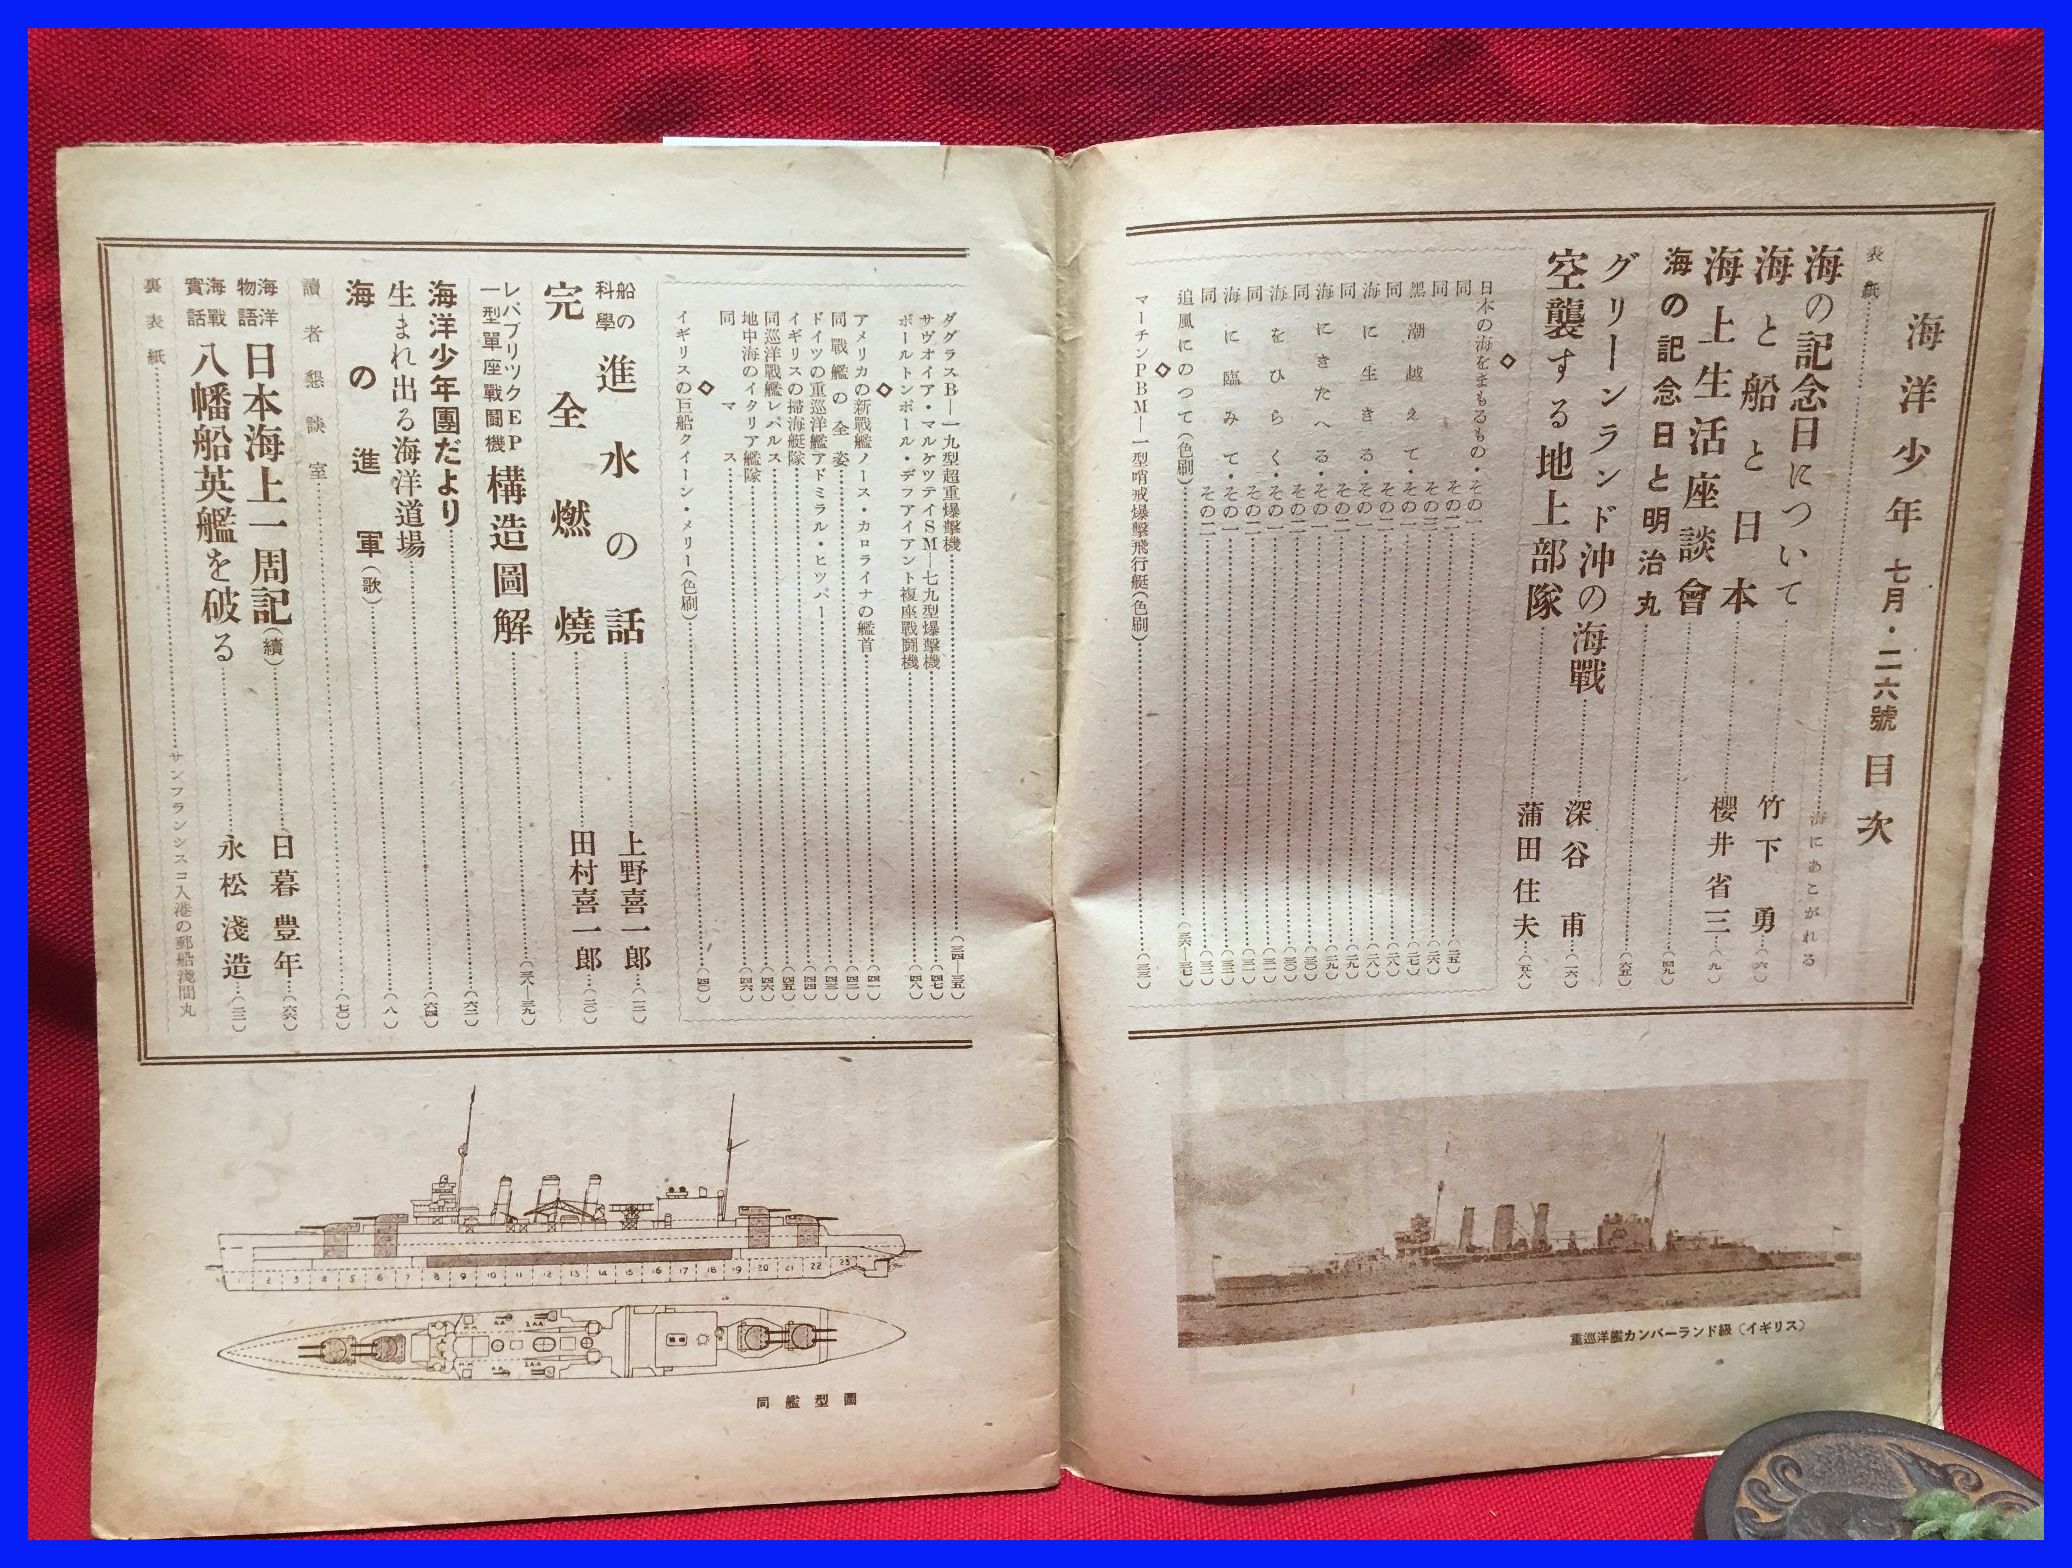 海洋少年 七月・二六號 目次
表紙 海にあこがれる
海の記念日について
海と船と日本 竹下勇 (六)
海上生活座談會 櫻井省三 (九)
海の記念日と明治丸 (四九)
グリーンランド沖の海戰 深谷甫 (一六)
空襲する地上部隊 蒲田住夫 (五八)
◇
日本の海をまもるもの・その一
同 その二 (二五)
同 その三 (二六)
黑潮越えて・その一 (二七)
同 その二 (二八)
海に生きる・その一 (二八)
同 その二 (二九)
海にきたへる・その一 (二九)
同 その二 (三〇)
海をひらく・その一
同 その二 (三一)
海に臨みて・その一
同 その二 (三二)
追風にのつて(色刷) (三六—三七)
◇
マーチンPBM—一型哨戒爆擊飛行艇(色刷) (三三)
ダグラスB—一九型超重爆擊機 (三四—三五)
サヴオイア・マルケツテイSM—七九型爆擊機 (四七)
ボールトンポール・デフアイアント複座戰鬪機 (四八)
◇
アメリカの新戰艦ノース・カロライナの艦首 (四一)
同戰艦の全姿 (四二)
ドイツの重巡洋艦アドミラル・ヒツパー (四三)
イギリスの掃海艇隊 (四四)
同巡洋戰艦レパルス (四五)
地中海のイタリア艦隊 (四六)
同 マス (四六)
◇
イギリスの巨船クイーン・メリー(色刷) (四〇)
船の科學 進水の話 上野喜一郎 (一二)
完全燃燒 田村喜一郎 (二〇)
レパブリツクEP一型單座戰鬪機 構造圖解 (三八—三九)
海洋少年團だより (六二)
生まれ出る海洋道場 (六四)
海の進軍(歌) (八)
讀者懇談室 (七〇)
海洋物語 日本海上一周記(續) 日暮豊年 (六六)
海戰實話 八幡船英艦を破る 永松淺造 (二二)
裏表紙 サンフランシスコ入港の郵船淺間丸
重巡洋艦カンバーランド級(イギリス)
1 2 3 4 5 6 7 8 9 10 11 12 13 14 15 16 17 18 19 20 21 22 23
同艦型圖